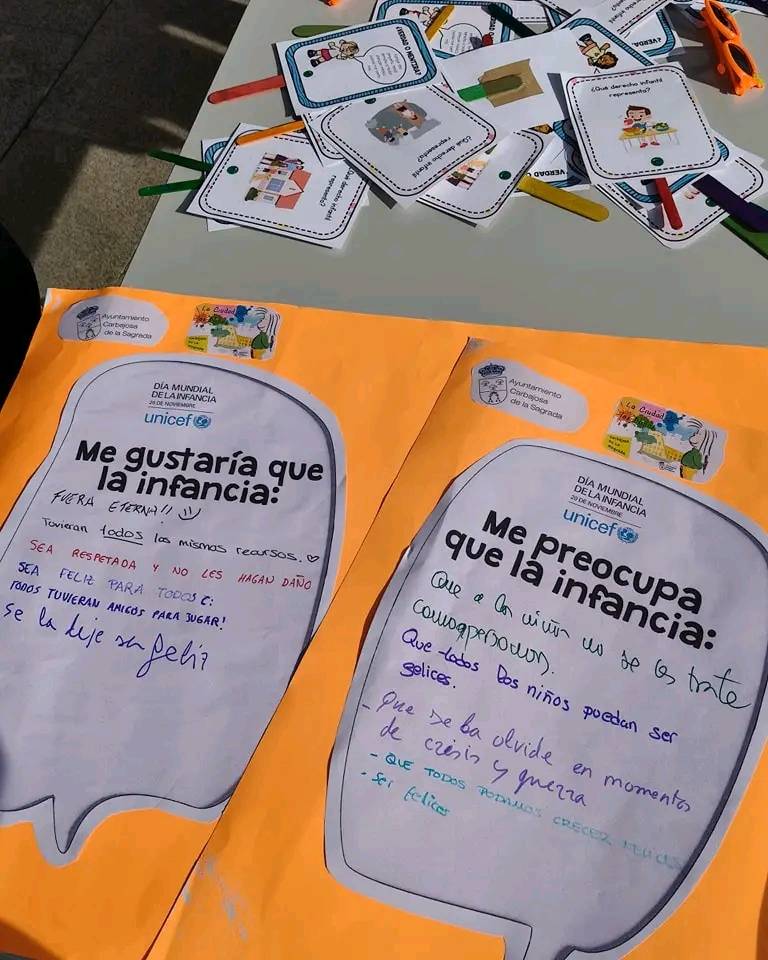 ¿VERDAD O MENTIRA?
¿VERDAD
¿Qué derecho infantil
representa?
¿Qué derecho infantil
representa?
¿Qué derecho infantil
representa?
VERDAD O
Ayuntamiento
Carbajosa
de la Sagrada
La Ciudad
DÍA MUNDIAL
DE LA INFANCIA
20 DE NOVIEMBRE
unicef
Me gustaría que
la infancia:
FUERA ETERNA!!
Tuvieran todos los mismos recursos. ♡
SEA RESPETADA Y NO LES HAGAN DAÑO
SEA FELIZ PARA TODOS C:
TODOS TUVIERAN AMIGOS PARA JUGAR!
Se la deje ser feliz
Ayuntamiento
Carbajosa
de la Sagrada
La Ciudad
DÍA MUNDIAL
DE LA INFANCIA
20 DE NOVIEMBRE
unicef
Me preocupa
que la infancia:
Que a los niños no se les trate
como personas.
Que todos los niños puedan ser
felices.
- Que se la olvide en momentos
de crisis y guerra
- QUE TODOS PODAMOS CRECER FELICES
- Ser felices